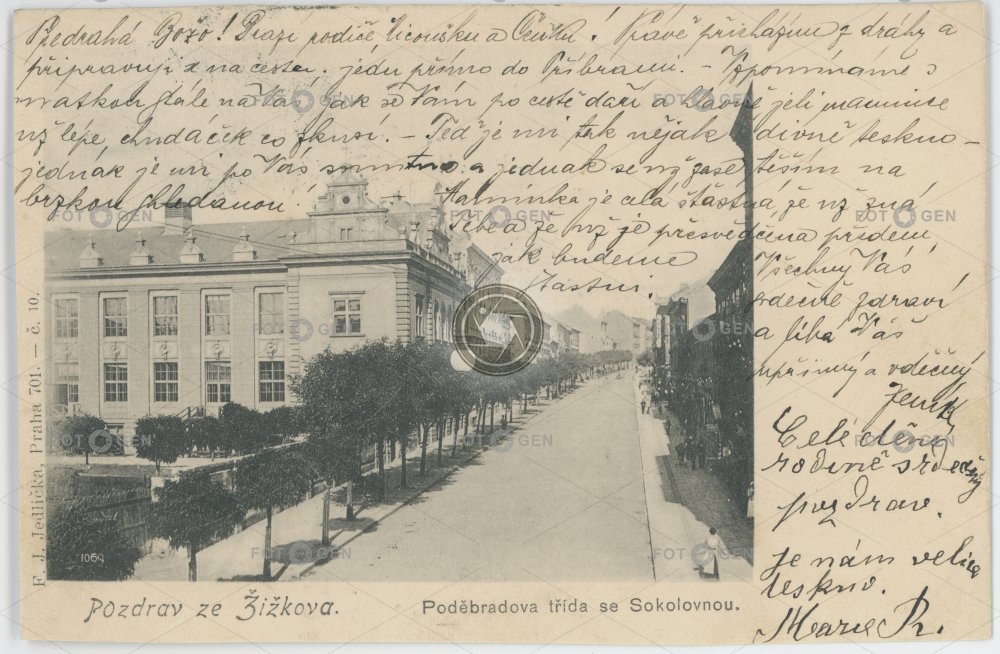 Předrahá Božo! Drazí rodiče Vicoušku a Čeňku! Právě přicházím z dráhy a
připravuji na cestu. jedu přímo do Příbrami. – Vzpomínáme s
matkou stále na Vás, jak se Vám po cestě daří a hlavně jeli mamince
už lépe, chudáček co zkusí. – Teď je mi tak nějak divně teskno –
jednak je mi po Vás smutno a jednak se už zase těším na
brzkou shledanou.
Maminka je celá šťastná, že už zná
Tebe a že už je přesvědčena předem
jak budeme
šťastni.
Všechny Vás
vděčně zdraví
a líbá Váš
upřímný a vděčný
Jeník
Celé děné
rodině srdečný
pozdrav.
Je nám velice
teskno.
Marie R.
F. J. Jedlička, Praha 701. — č. 10.
1069
Pozdrav ze Žižkova.
Poděbradova třída se Sokolovnou.
FOTOGEN